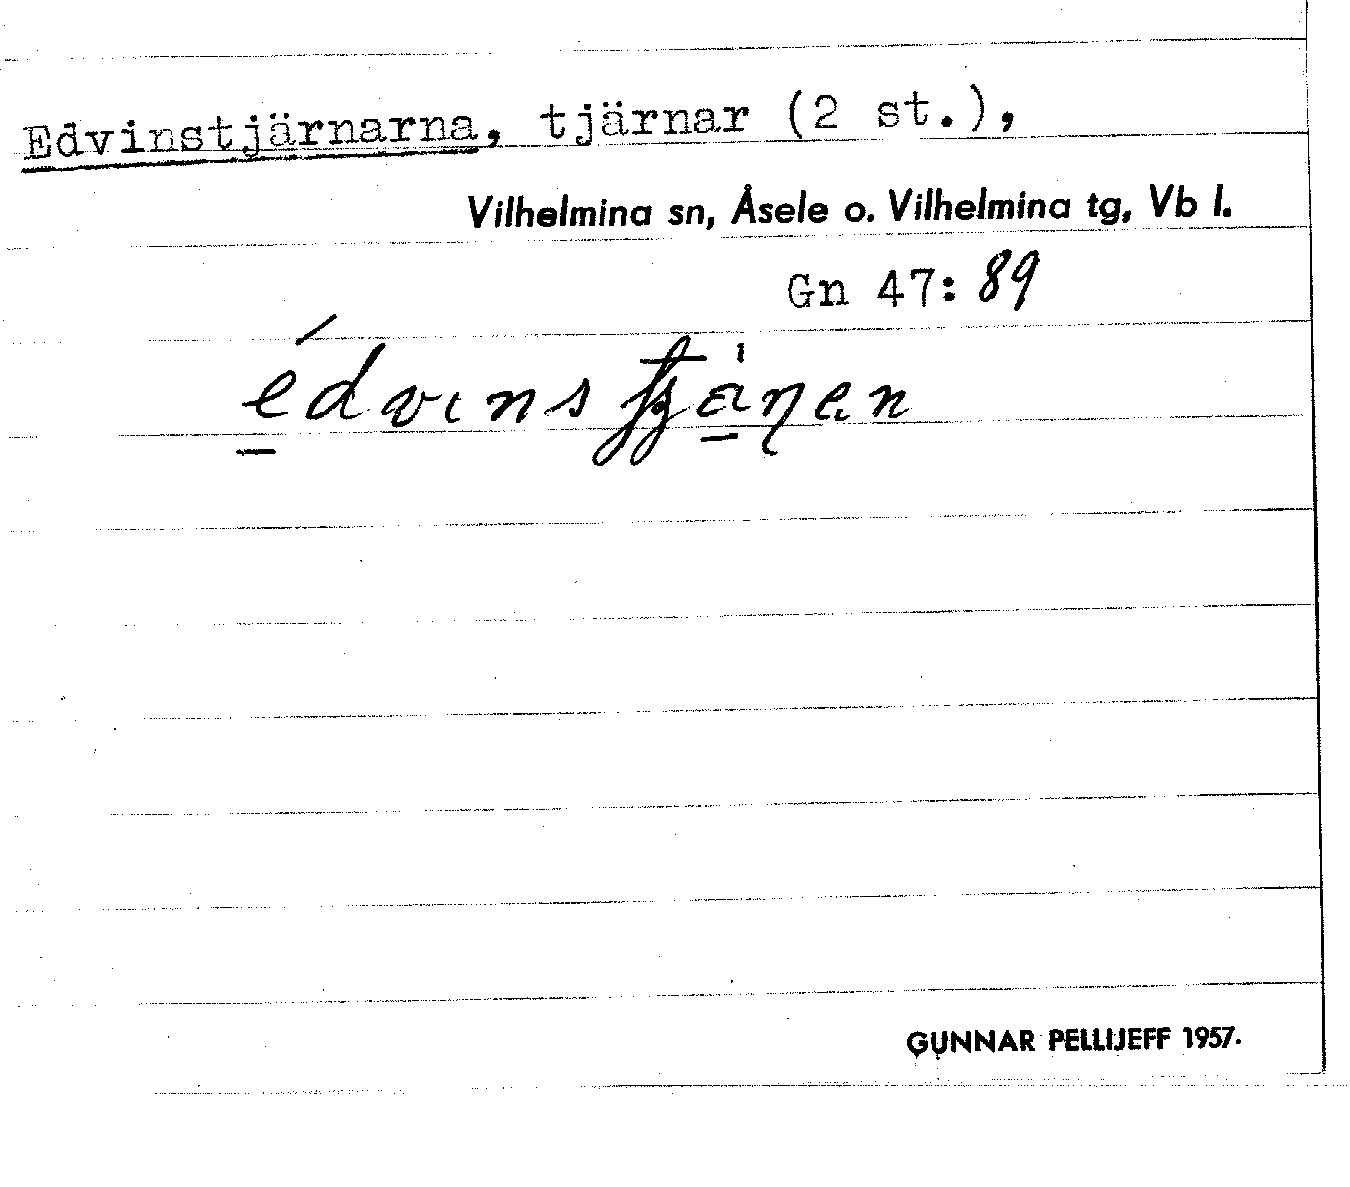 Edvinstjärnarna, tjärnar (2 st.),
Vilhelmina sn, Åsele o. Vilhelmina tg, Vb l.
Gn 47: 89
GUNNAR PELLIJEFF 1957.